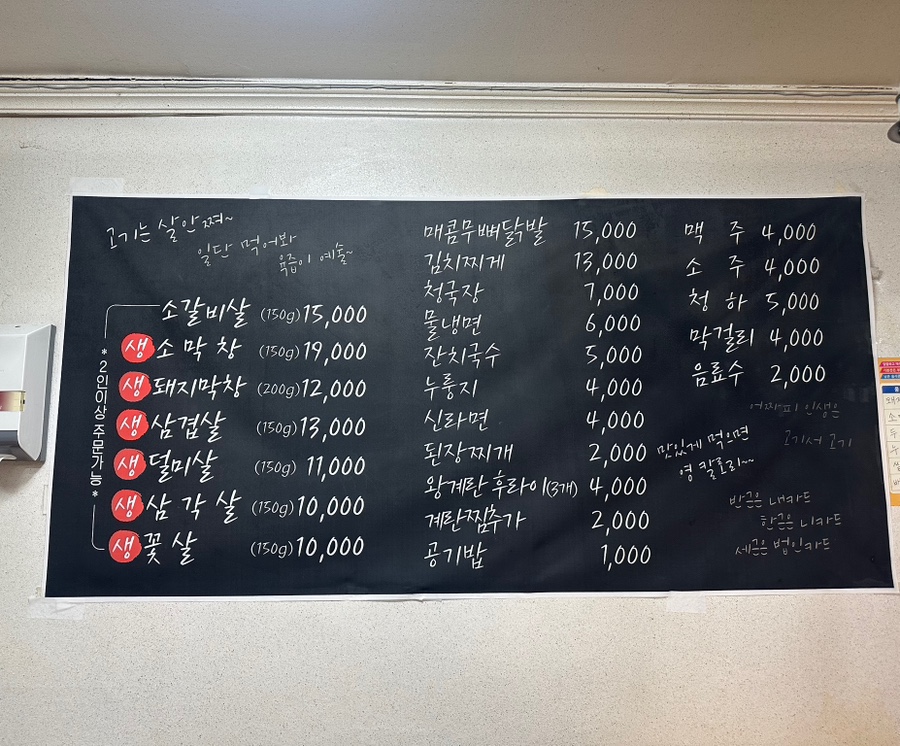 고기는 살안쪄~
일단 먹어봐
육즙이 예술~
*2인이상 주문가능*
소갈비살 (150g) 15,000
생 소막창 (150g) 19,000
생 돼지막창 (200g) 12,000
생 삼겹살 (150g) 13,000
생 덜미살 (150g) 11,000
생 삼각살 (150g) 10,000
생 꽃살 (150g) 10,000
매콤무뼈닭발 15,000
김치찌게 13,000
청국장 7,000
물냉면 6,000
잔치국수 5,000
누룽지 4,000
신라면 4,000
된장찌개 2,000
왕계란 후라이(3개) 4,000
계란찜추가 2,000
공기밥 1,000
맥주 4,000
소주 4,000
청하 5,000
막걸리 4,000
음료수 2,000
어짜피 인생은
고기서 고기
맛있게 먹으면
영 칼로리~~
반근은 내카드
한근은 니카드
세근은 법인카드